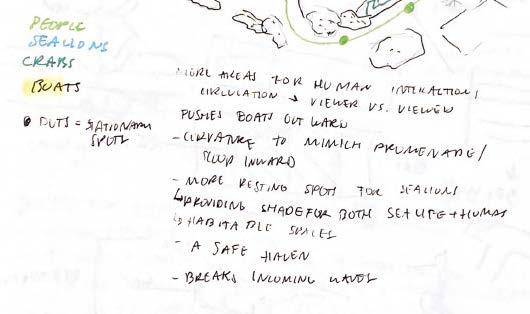 PEOPLE
SEALIONS
CRABS
BOATS
• DOTS = STATIONARY
SPOTS
MORE AREAS FOR HUMAN INTERACTION/
CIRCULATION → VIEWER VS. VIEWED
PUSHES BOATS OUTWARD
- CURVATURE TO MIMICH PROMENADE/
INWARD
- MORE RESTING SPOTS FOR SEALIONS
↳ PROVIDING SHADE FOR BOTH SEALIFE + HUMAS
↳ HABITABLE SPACES
- A SAFE HAVEN
- BREAKS INCOMING WAVES